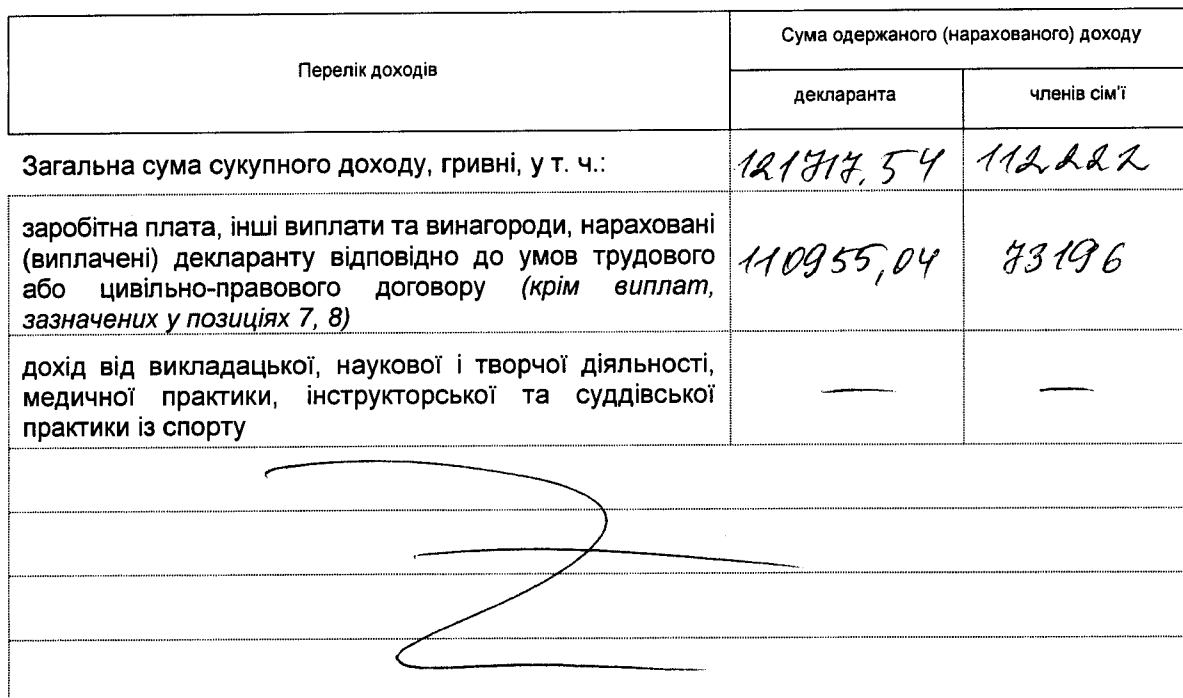 Перелік доходів
Сума одержаного (нарахованого) доходу
декларанта
членів сім'ї
Загальна сума сукупного доходу, гривні, у т. ч.:
121717,54
112222
заробітна плата, інші виплати та винагороди, нараховані
(виплачені) декларанту відповідно до умов трудового
або цивільно-правового договору (крім виплат,
зазначених у позиціях 7, 8)
110955,04
73196
дохід від викладацької, наукової і творчої діяльності,
медичної практики, інструкторської та суддівської
практики із спорту
—
—